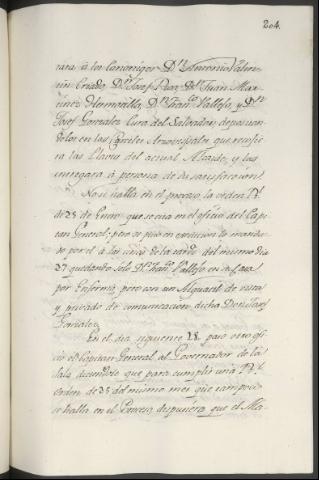 204.
rara á los Canonigos Dn. Antonio Valen-
tin Criado, Dn. Josef Ruiz, Dn. Juan Mar-
tinez Hermosilla, Dn. Franco. Vallejo, y Dn.
Josef Gonzalez Cura del Salvador, deposi
dolos en las Carceles Arzovispales que
ra las llaves del actual Alcaide, y las
entregará á persona de su satisfaccion.
No se halla en el proceso, la orden Rl.
de 23 de Enero que se cita en el oficio del Capi-
tan General; pero se puso en execucion
se por el á las cinco de la tarde del mismo dia
27 quedando solo Dn. Franco. Vallejo en su Casa
por Enfermo, pero con un Alguacil de vista
y privado de comunicacion dicho Don Josef
Gonzalez.
En el dia siguiente 28. paso otro ofi-
cio el Capitan General, al Governador de la
Sala diciendole que para cumplir una Rl.
orden de 25 del mismo mes que tampoco
se halla en el Proceso, dispusiera que el Ma-